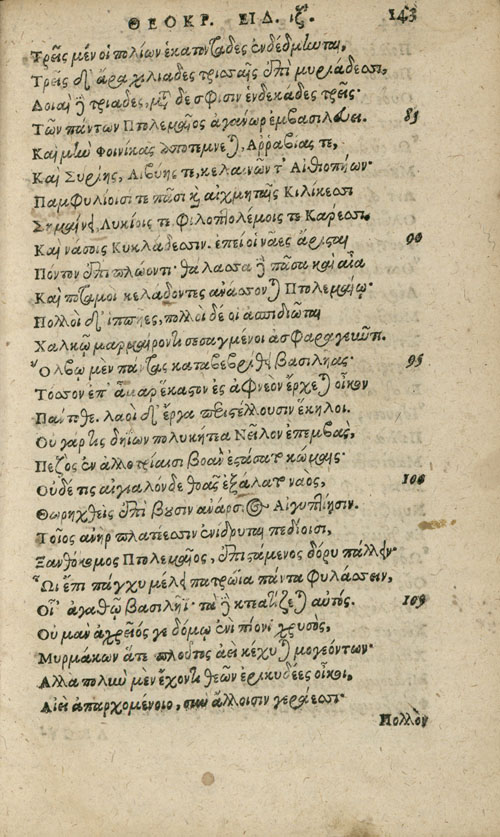 ΘΕΟΚΡ. ΕΙΔ. ιζ. 143
Τρεῖς μέν οἱ πολίων ἑκατοντάδες ἐνδέδμηνται,
Τρεῖς δ' ἄρα χιλιάδες τρισσαῖς ἐπὶ μυριάδεσσι,
Δοιαὶ ἢ τριάδες, μετὰ δέ σφισιν ἑνδεκάδες τρεῖς·
Τῶν πάντων Πτολεμαῖος ἀγάνωρ ἐμβασιλεύει. 85
Καὶ μὴν Φοινίκας ἀποτέμνεται, Ἀῤῥαβίας τε,
Καὶ Συρίης, Λιβύης τε, κελαινῶν τ' Αἰθιοπήων·
Παμφυλίοισί τε πᾶσι καὶ αἰχμηταῖς Κιλίκεσσι
Σημαίνει, Λυκίοις τε, Φιλοπτολέμοις τε Κάρεσσι,
Καὶ νάσοις Κυκλάδεσσιν. ἐπεί οἱ νᾶες ἄρισται 90
Πόντον ἐπιπλώοντι· θάλασσα δὲ πᾶσα καὶ αἶα
Καὶ ποταμοὶ κελάδοντες ἀνάσσονται Πτολεμαίῳ·
Πολλοὶ δ' ἱππῆες, πολλοὶ δέ οἱ ἀσπιδιῶται
Χαλκῷ μαρμαίροντι σεσαγμένοι ἀσφαραγεῦντι.
Ὄλβῳ μὲν πάντας καταβεβρίθει βασιλῆας· 95
Τόσσον ἐπ' ἆμαρ ἕκαστον ἐς ἀφνεὸν ἔρχεται οἶκον
Πάντοθε. λαοὶ δ' ἔργα περιστέλλουσιν ἕκηλοι.
Οὐ γάρ τις δηΐων πολυκήτεα Νεῖλον ἐπεμβὰς,
Πεζὸς ἐν ἀλλοτρίαισι βοὰν ἐστάσατο κώμαις·
Οὐδέ τις αἰγιαλόνδε θοᾶς ἐξάλατο ναὸς, 100
Θωρηχθεὶς ἐπὶ βουσὶν ἀνάρσιος Αἰγυπτίῃσιν.
Τοῖος ἀνὴρ πλατέεσσιν ἐνίδρυται πεδίοισι,
Ξανθόκομος Πτολεμαῖος, ἐπιστάμενος δόρυ πάλλειν·
Ὧι ἐπὶ πάγχυ μέλει πατρώϊα πάντα φυλάσσειν,
Οἷ' ἀγαθῷ βασιλῆϊ· τὰ δὲ κτεατίζεται αὐτός. 105
Οὐ μὰν ἀχρεῖός γε δόμῳ ἐνὶ πίονι χρυσὸς,
Μυρμάκων ἅτε πλοῦτος ἀεὶ κέχυται μογεόντων·
Ἀλλὰ πολὺν μὲν ἔχοντι θεῶν ἐρικυδέες οἶκοι,
Αἰεὶ ἀπαρχομένοιο, σὺν ἄλλοισιν γεράεσσι·
Πολλὸν